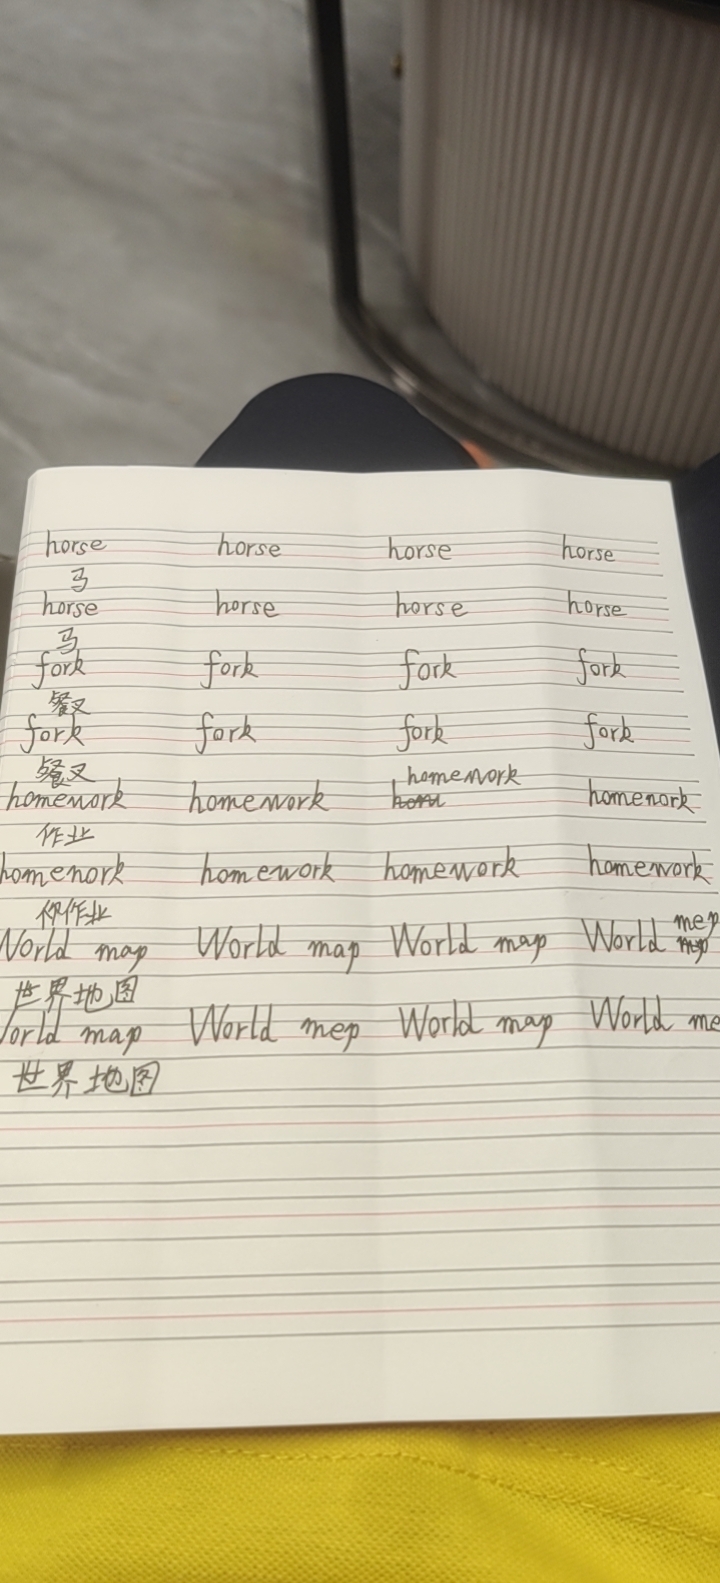 horse horse horse horse
马
horse horse horse horse
马
fork fork fork fork
餐叉
fork fork fork fork
餐叉
homework
homework homework homenork
作业
homenork homework homework homework
作业
World map World map World map World mep
世界地图
orld map World mep World map World me
世界地图